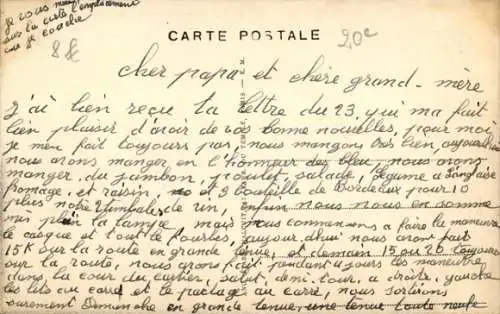 je vous
sur la carte l'emplacement
ou je couche
CARTE POSTALE
Cher papa et chère grand-mère
J'ai bien reçu ta lettre du 23, qui m'a fait
bien plaisir d'avoir de vos bonne nouvelles, pour moi
je m'en fait toujours pas, nous mangons très bien, aujourd'hui
nous avons manger en l'honneur des bleu, nous avons
manger du jambon, poulet, salade, légume a l'anglaise
fromage, et raisin, et 3 bouteille de bordeaux pour 10
plus notre timbale de vin, enfin nous nous en somme
mis plein la lampe mais nous commensons a faire la maneuvre
le casque et tout le fourbis, aujourd'hui nous avons fait
15K sur la route en grande tenue, et demain 15 ou 20 toujours
sur la route, nous avons fait pendant 2 jours les maneuvre
dans la cour du quartier, salut, demi-tour, a droite, gauche
les lits au carré et le pactage au carré, nous sortirons
surement Dimanche en grande tenue, une tenue toute neuf